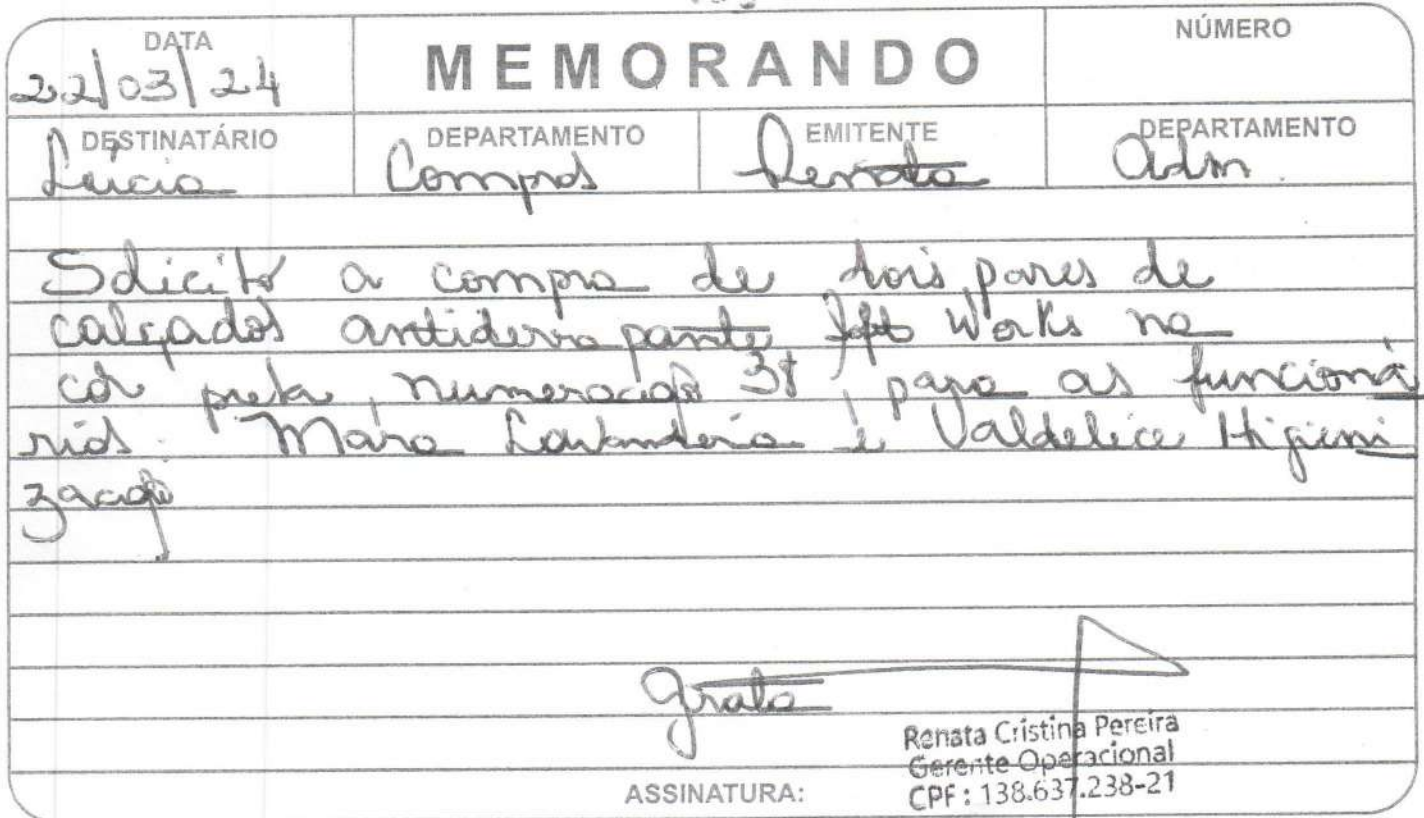 DATA
22/03/24
MEMORANDO
NÚMERO
DESTINATÁRIO
Lucia
DEPARTAMENTO
Compras
EMITENTE
Renata
DEPARTAMENTO
Adm.
Solicito a compra de dois pares de
calçados antiderrapante Soft Works na
cor preta, numeração, para as funcioná
rias. Mara Lavanderia e Valdelice Higieni
zação
Grata
Renata Cristina Pereira
Gerente Operacional
CPF: 138.637.238-21
ASSINATURA: